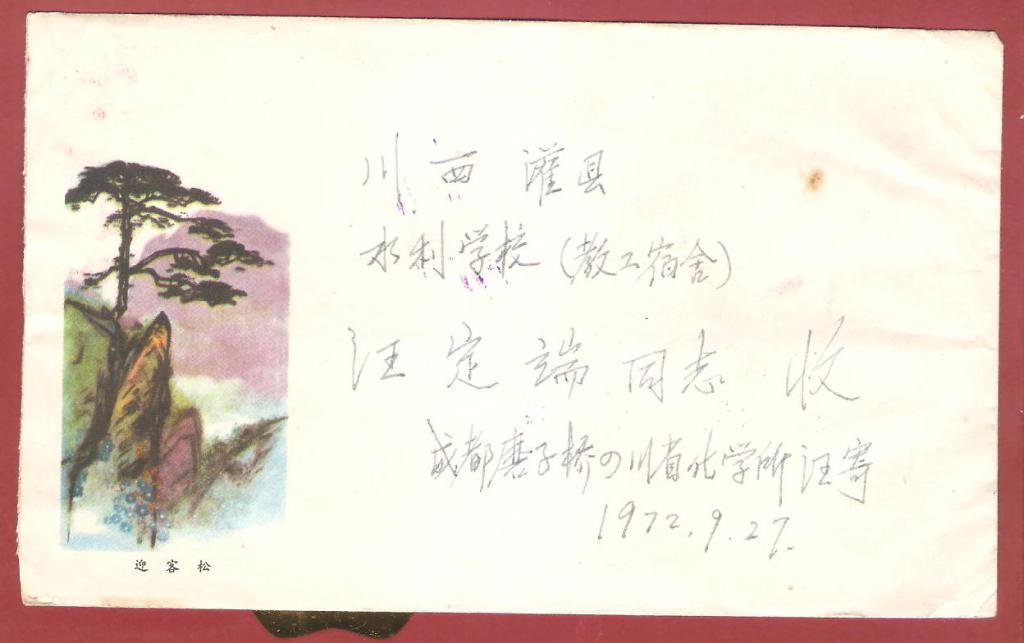 川西灌县
水利学校(教工宿舍)
汪定端同志 收
成都磨子桥四川省化学所汪寄
1972.9.27.
迎客松